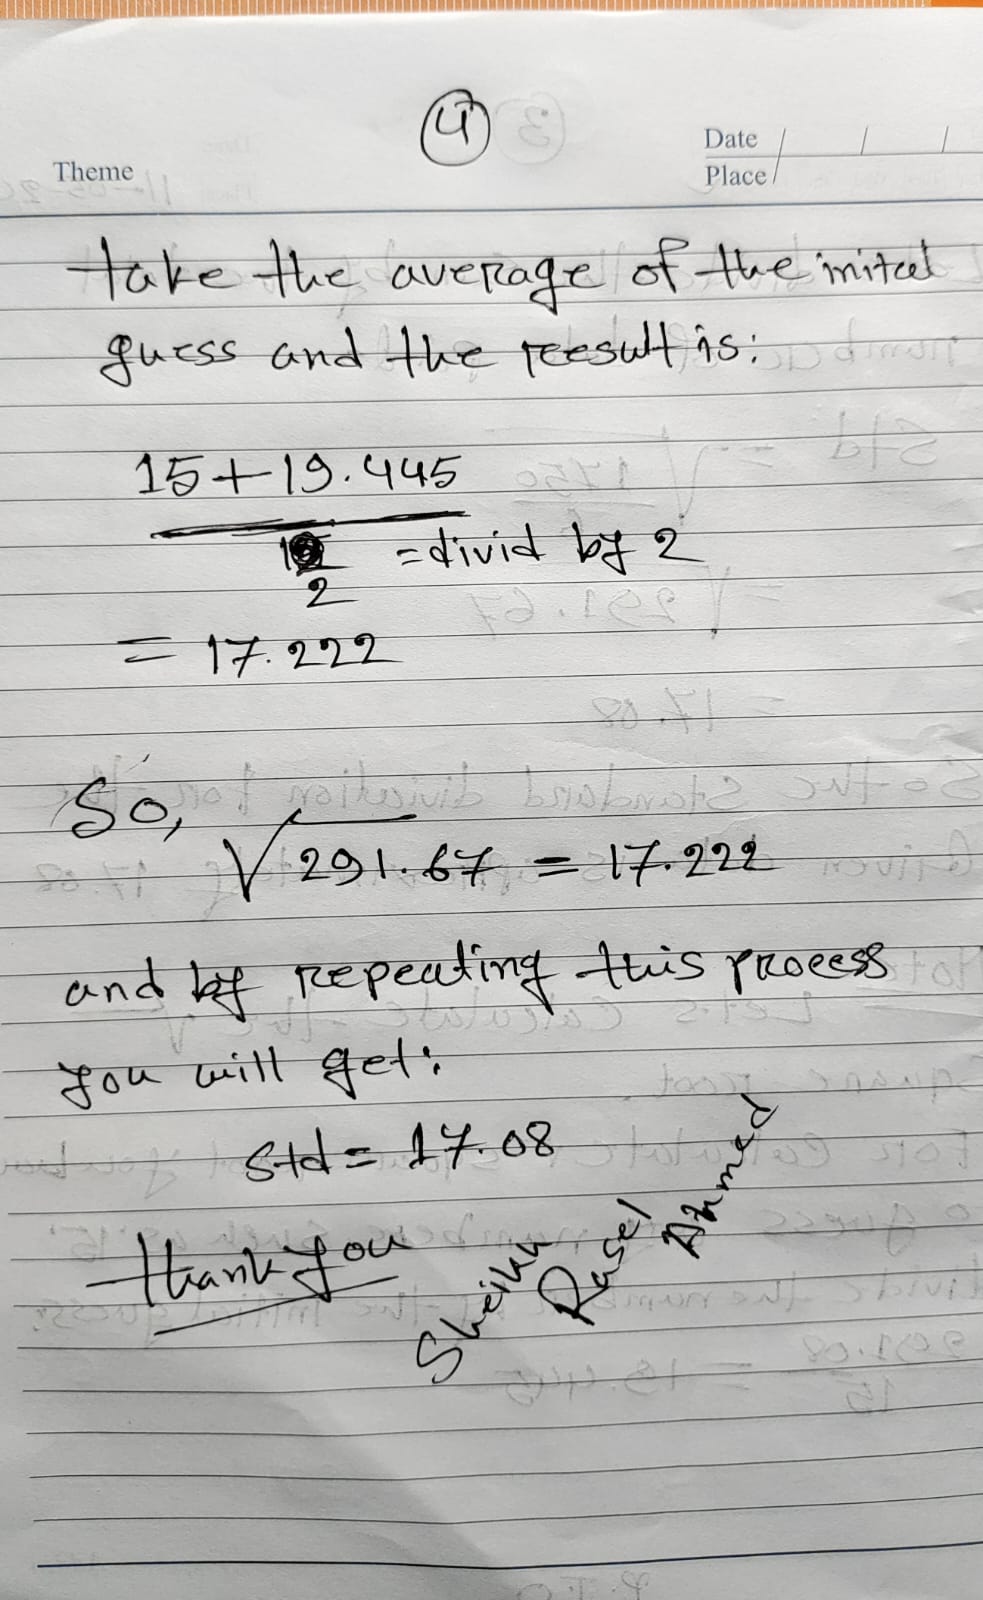 4
Date / / /
Theme
Place /
take the average of the initeel
guess and the reesult is:
15+19.445
2 = divid by 2
= 17.222
So,
√291.67 = 17.222
and by repeating this process
you will get:
Std = 17.08
Thank you
Sheikh Rasel Ahmed